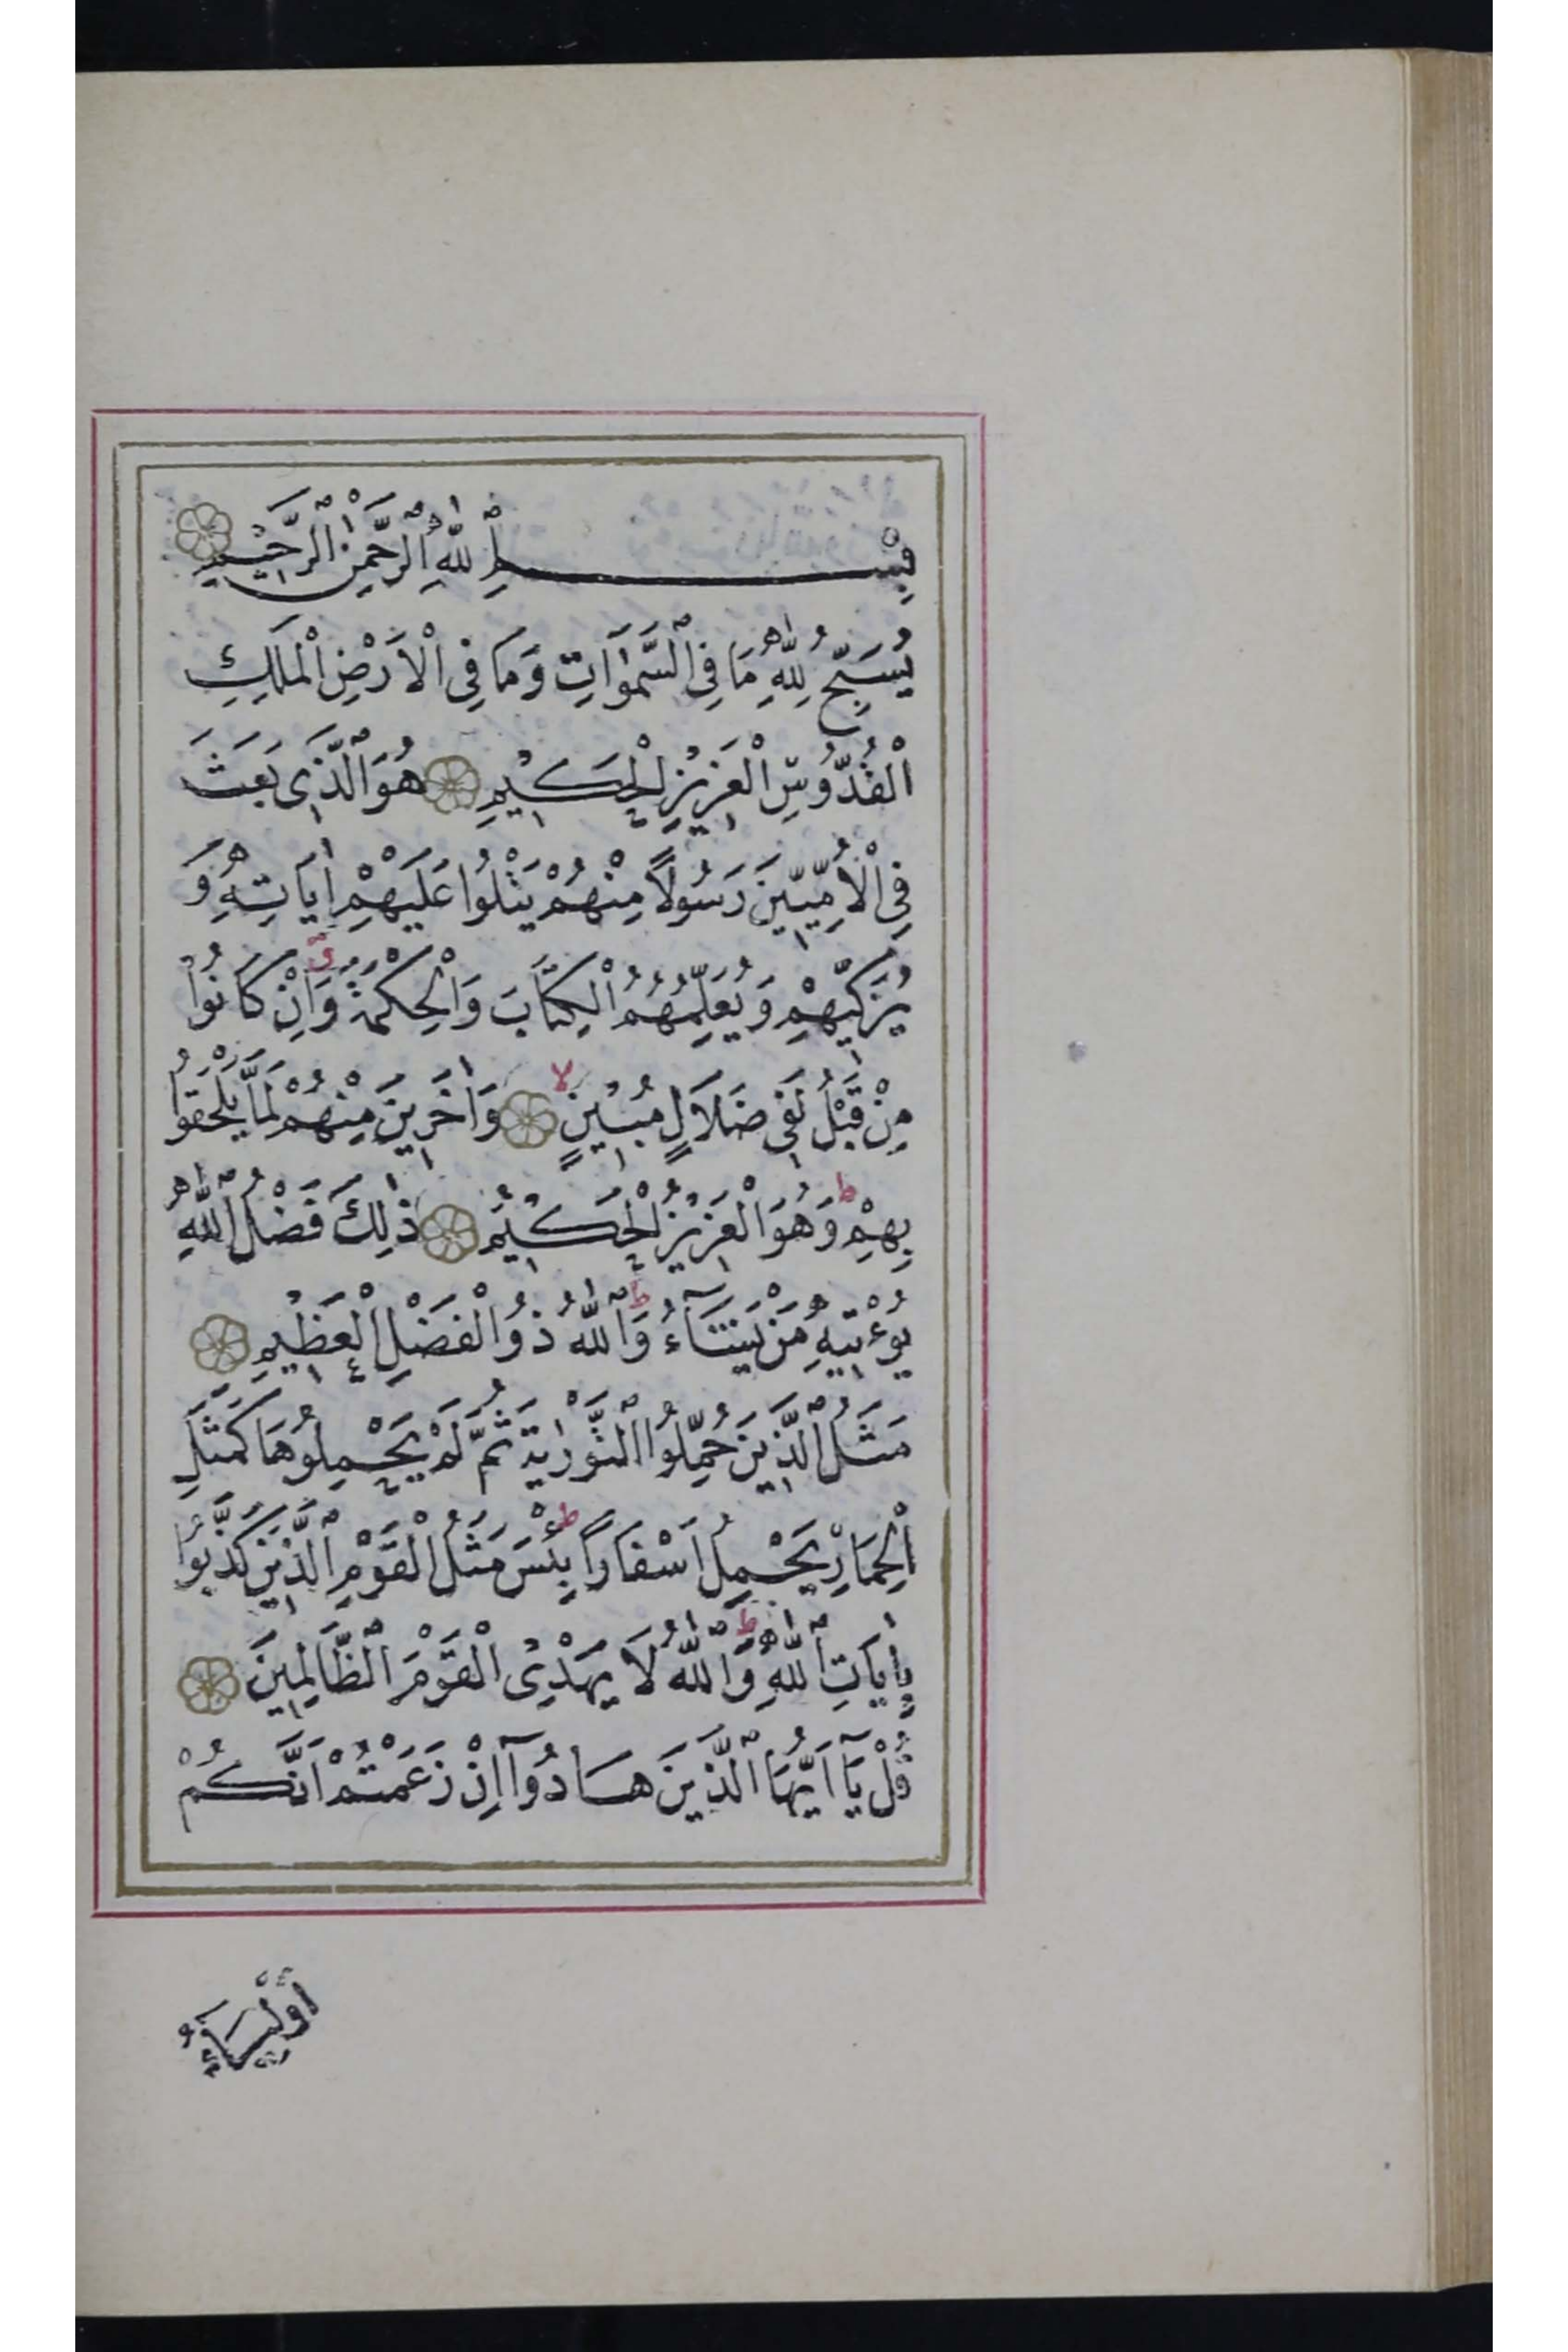 بِسْمِ اللّٰهِ الرَّحْمٰنِ الرَّحِيْمِ
يُسَبِّحُ لِلّٰهِ مَا فِي السَّمٰوَاتِ وَمَا فِي الْاَرْضِ الْمَلِكِ
الْقُدُّوسِ الْعَزِيْزِ الْحَكِيْمِ هُوَ الَّذِي بَعَثَ
فِي الْاُمِّيّٖنَ رَسُولًا مِنْهُمْ يَتْلُوا عَلَيْهِمْ اٰيَاتِهٖ وَ
يُزَكّٖيهِمْ وَيُعَلِّمُهُمُ الْكِتَابَ وَالْحِكْمَةَ ۗ وَاِنْ كَانُوا
مِنْ قَبْلُ لَفٖي ضَلَالٍ مُبٖينٍ لا وَاٰخَرٖينَ مِنْهُمْ لَمَّا يَلْحَقُوا
بِهِمْ ط وَهُوَ الْعَزٖيزُ الْحَكٖيمُ ذٰلِكَ فَضْلُ اللّٰهِ
يُؤْتٖيهِ مَنْ يَشَآءُ ط وَاللّٰهُ ذُو الْفَضْلِ الْعَظٖيمِ
مَثَلُ الَّذٖينَ حُمِّلُوا التَّوْرٰيةَ ثُمَّ لَمْ يَحْمِلُوهَا كَمَثَلِ
الْحِمَارِ يَحْمِلُ اَسْفَارًا ط بِئْسَ مَثَلُ الْقَوْمِ الَّذٖينَ كَذَّبُوا
بِاٰيَاتِ اللّٰهِ ط وَاللّٰهُ لَا يَهْدِى الْقَوْمَ الظَّالِمٖينَ
قُلْ يَآ اَيُّهَا الَّذٖينَ هَادُوآ اِنْ زَعَمْتُمْ اَنَّكُمْ
اَوْلِيَاءُ